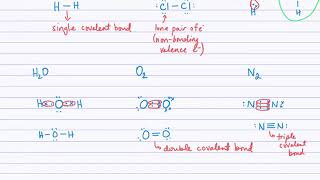 H—H :Cl—Cl: H
single covalent bond lone pair of e⁻
(non-bonding
valence e⁻) H
H₂O O₂ N₂
H O H O O :N N:
H—O—H O=O :N≡N:
double covalent bond triple
covalent
bond